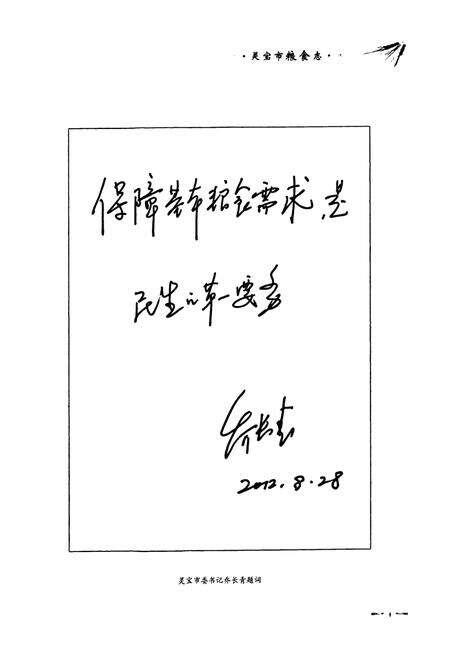 ·灵宝市粮食志·
保障基本粮食需求，是
民生之第一要务
乔长青
2012.8.28
灵宝市委书记乔长青题词
— 1 —